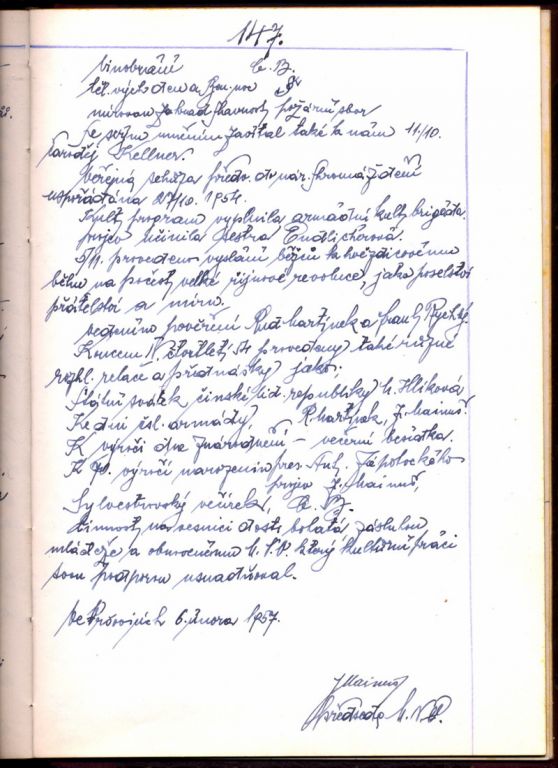 147.
Vinobraní Č. B.
těl. vých. den a
mírovou zahrad. slavnost požární sbor
se svým uměním zavítal také k nám 11/10.
čaroděj Kellner.
Veřejná schůze předv. do nár. shromáždění
uspořádána 27/10. 1954.
Kult. program vyplnila armádní kult. brigáda
projev učinila sestra Endlicherová.
5/11. provedeno vyslání běžců k hvězdicovému
běhu na počest velké říjnové revoluce, jako poselství
přátelství a míru.
vedením pověřeni Rud. Martínek a Frant. Rychlý.
Koncem IV. čtvrtlet. 54 provedeny také různé
rozhl. relace a přednášky jako:
Státní svátek čínské lid. republiky u. Hlíková
Ke dni čsl. armády, R. Martínek, J. Maimuš.
K výročí dne znárodnění – večerní besídka.
K 70. výročí narozenin pres. Ant. Zápotockého
projev J. Maimuš,
Sylvestrovský večírek, Č. B.
činnost na vesnici dosti bohatá zásluhou
mládeže a obvrocnému M. N. V. který kulturní práci
svou podporou usnadňoval.
Ve 6. února 1957.
JMaimuš
předseda M. N. V.